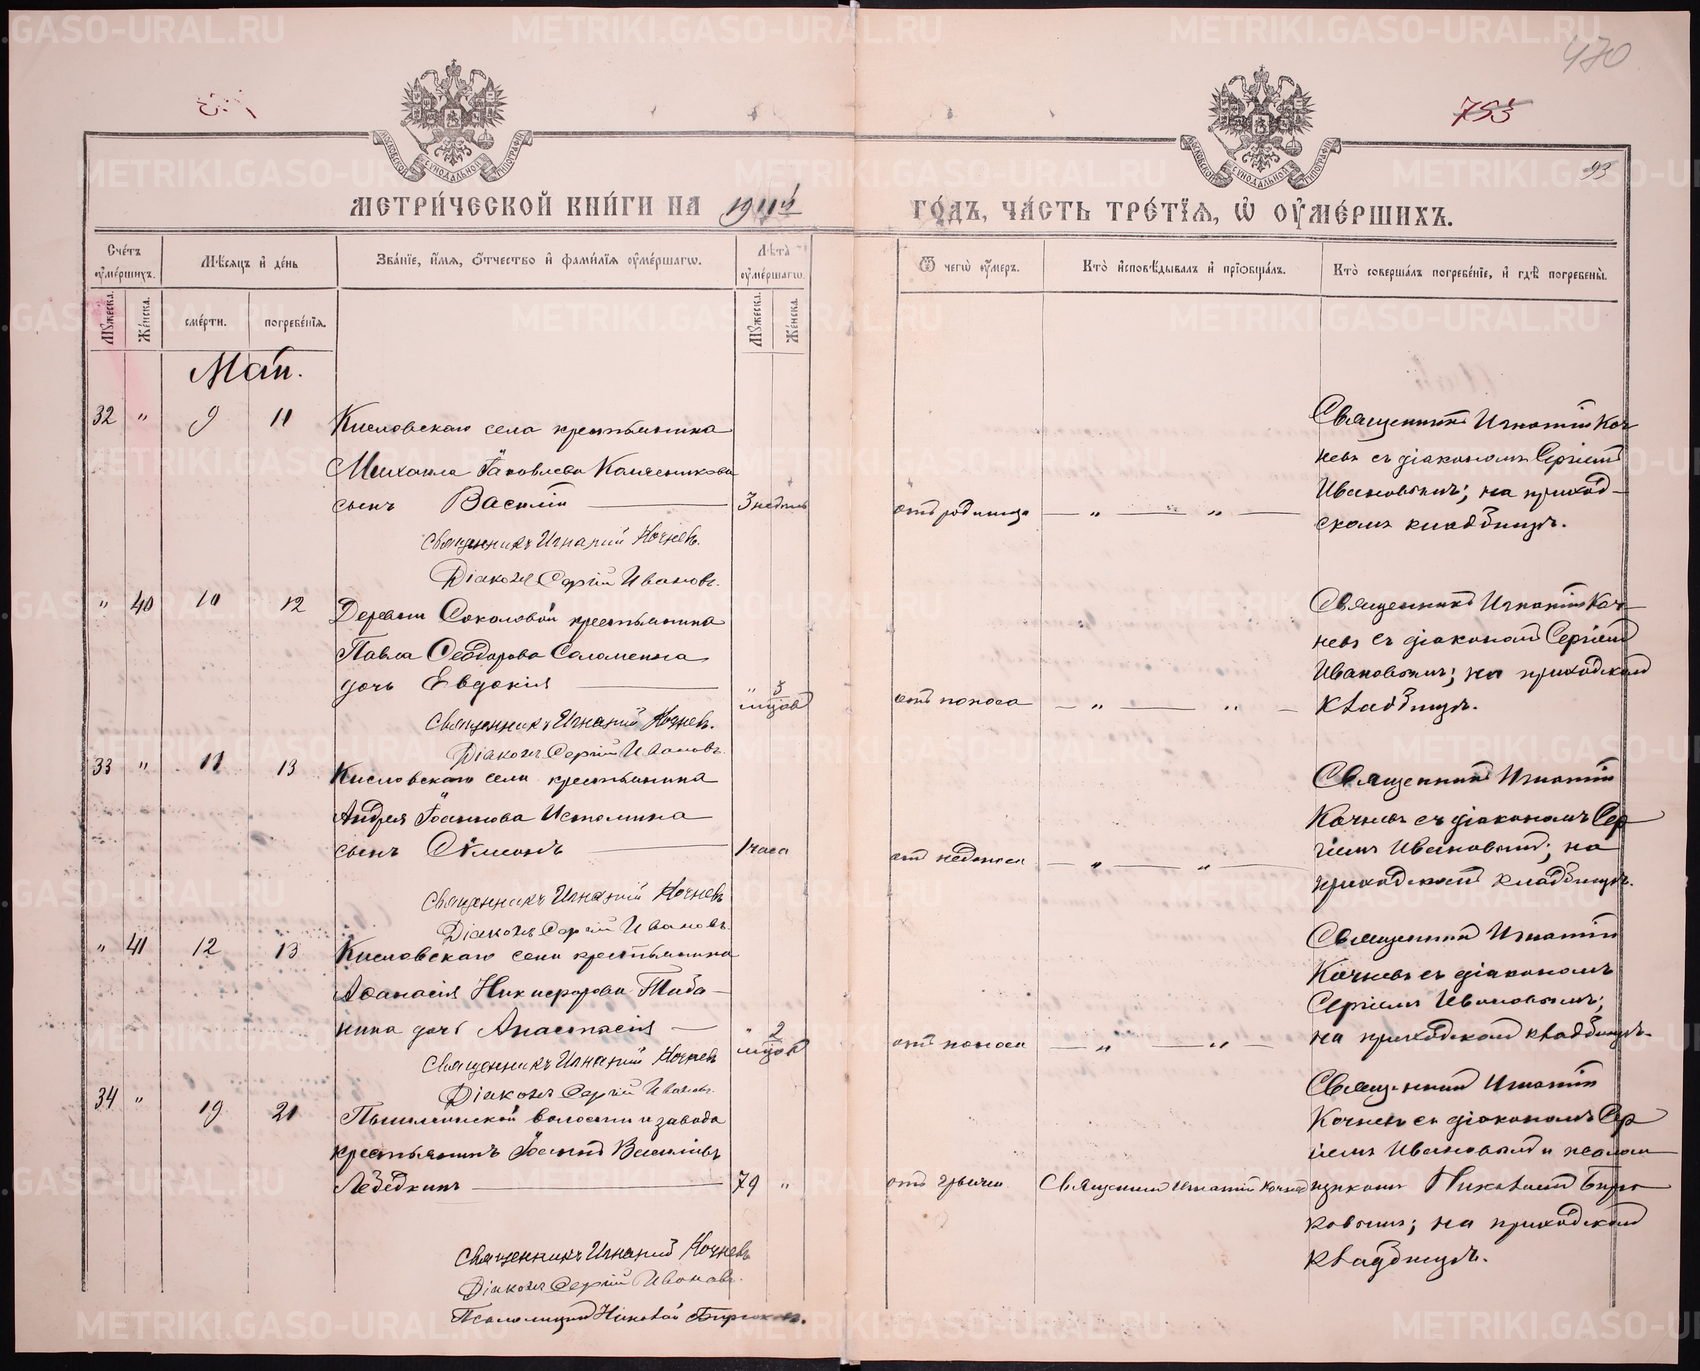 470
753
93
МЕТРИ́ЧЕСКОЙ КНИ́ГИ НА 1911й ГО́ДЪ, ЧА́СТЬ ТРЕ́ТІѦ, Ѡ҆ ОУ҆МЕ́РШИХЪ.
Сче́тъ оу҆ме́ршихъ.
Мѣсяцъ и҆ де́нь
Зва́нїе, и҆́мѧ, ѻ҆́тчество и҆ фами́лїѧ оу҆ме́ршагѡ.
Лѣта̀ оу҆ме́ршагѡ.
Ѿ чегѡ̀ оу҆́меръ.
Кто̀ и҆сповѣ́дывалъ и҆ прїѡбща́лъ.
Кто̀ соверша́лъ погребе́нїе, и҆ гдѣ̀ погребены̀.
Мꙋ́жеска.
Же́нска.
сме́рти.
погребе́нїѧ.
Мꙋ́жеска.
Же́нска.
Май.
32 " 9 11
Кисловскаго села крестьянина
Михаила Іаковлева Калченикова
сынъ Василій 3 недѣль
отъ родимца — " — " —
Священникъ Игнатій Коч-
невъ съ діакономъ Сергіемъ
Ивановымъ; на приход-
скомъ кладбищѣ.
Священникъ Игнатій Кочневъ.
Діаконъ Сергій Ивановъ.
" 40 10 12
Деревни Соколовой крестьянина
Павла Ѳеодорова Соломеина
дочь Евдокія " 3 мцовъ
отъ поноса — " — " —
Священникъ Игнатій Коч-
невъ съ діакономъ Сергіемъ
Ивановымъ; на приходскомъ
кладбищѣ.
Священникъ Игнатій Кочневъ.
Діаконъ Сергій Ивановъ.
33 " 11 13
Кисловскаго села крестьянина
Андрея Іоаннова Истомина
сынъ Сѵмеонъ 1 часа
отъ недоноса — " — " —
Священникъ Игнатій
Кочневъ съ діакономъ Сер-
гіемъ Ивановымъ; на
приходскомъ кладбищѣ.
Священникъ Игнатій Кочневъ
Діаконъ Сергій Ивановъ.
" 41 12 13
Кисловскаго села крестьянина
Аѳанасія Никифорова
дочь Анастасія — " 2 мцовъ
отъ поноса — " — " —
Священникъ Игнатій
Кочневъ съ діакономъ
Сергіемъ Ивановымъ;
на приходскомъ кладбищѣ.
Священникъ Игнатій Кочневъ
Діаконъ Сергій Ивановъ.
34 " 19 21
Пышминской волости и завода
крестьянинъ Іоаннъ Васильевъ
Лебедкинъ 79 "
отъ грыжи Священникъ Игнатій Кочневъ
Священникъ Игнатій
Кочневъ съ діакономъ Сер-
гіемъ Ивановымъ и псалом-
щикомъ Николаемъ Бирю-
ковымъ; на приходскомъ
кладбищѣ.
Священникъ Игнатій Кочневъ
Діаконъ Сергій Ивановъ.
Псаломщикъ Николай Бирюковъ.
METRIKI.GASO-URAL.RU